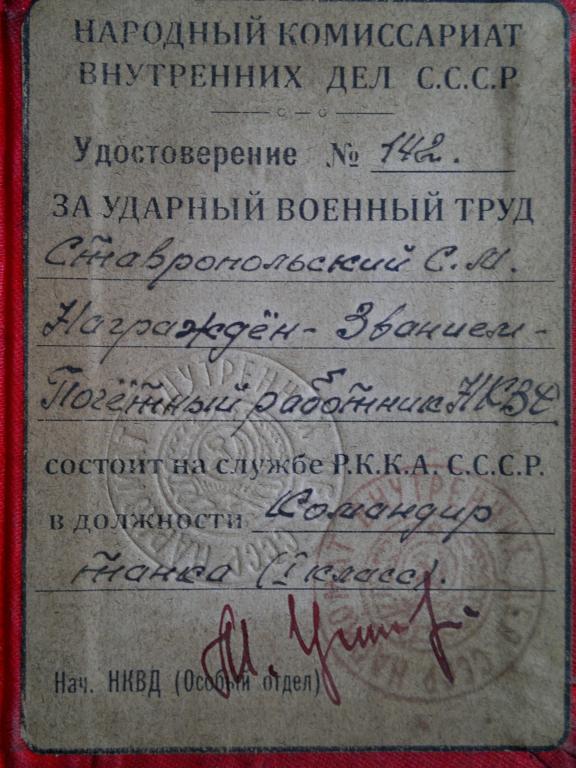 НАРОДНЫЙ КОМИССАРИАТ
ВНУТРЕННИХ ДЕЛ С.С.С.Р
Удостоверение № 142.
ЗА УДАРНЫЙ ВОЕННЫЙ ТРУД
Ставропольский С.М.
Награждён - Званием -
Почётный работник НКВД
СОСТОИТ НА СЛУЖБЕ Р.К.К.А. С.С.С.Р.
В ДОЛЖНОСТИ Командир
танка (I класс).
Нач. НКВД (Особый отдел)